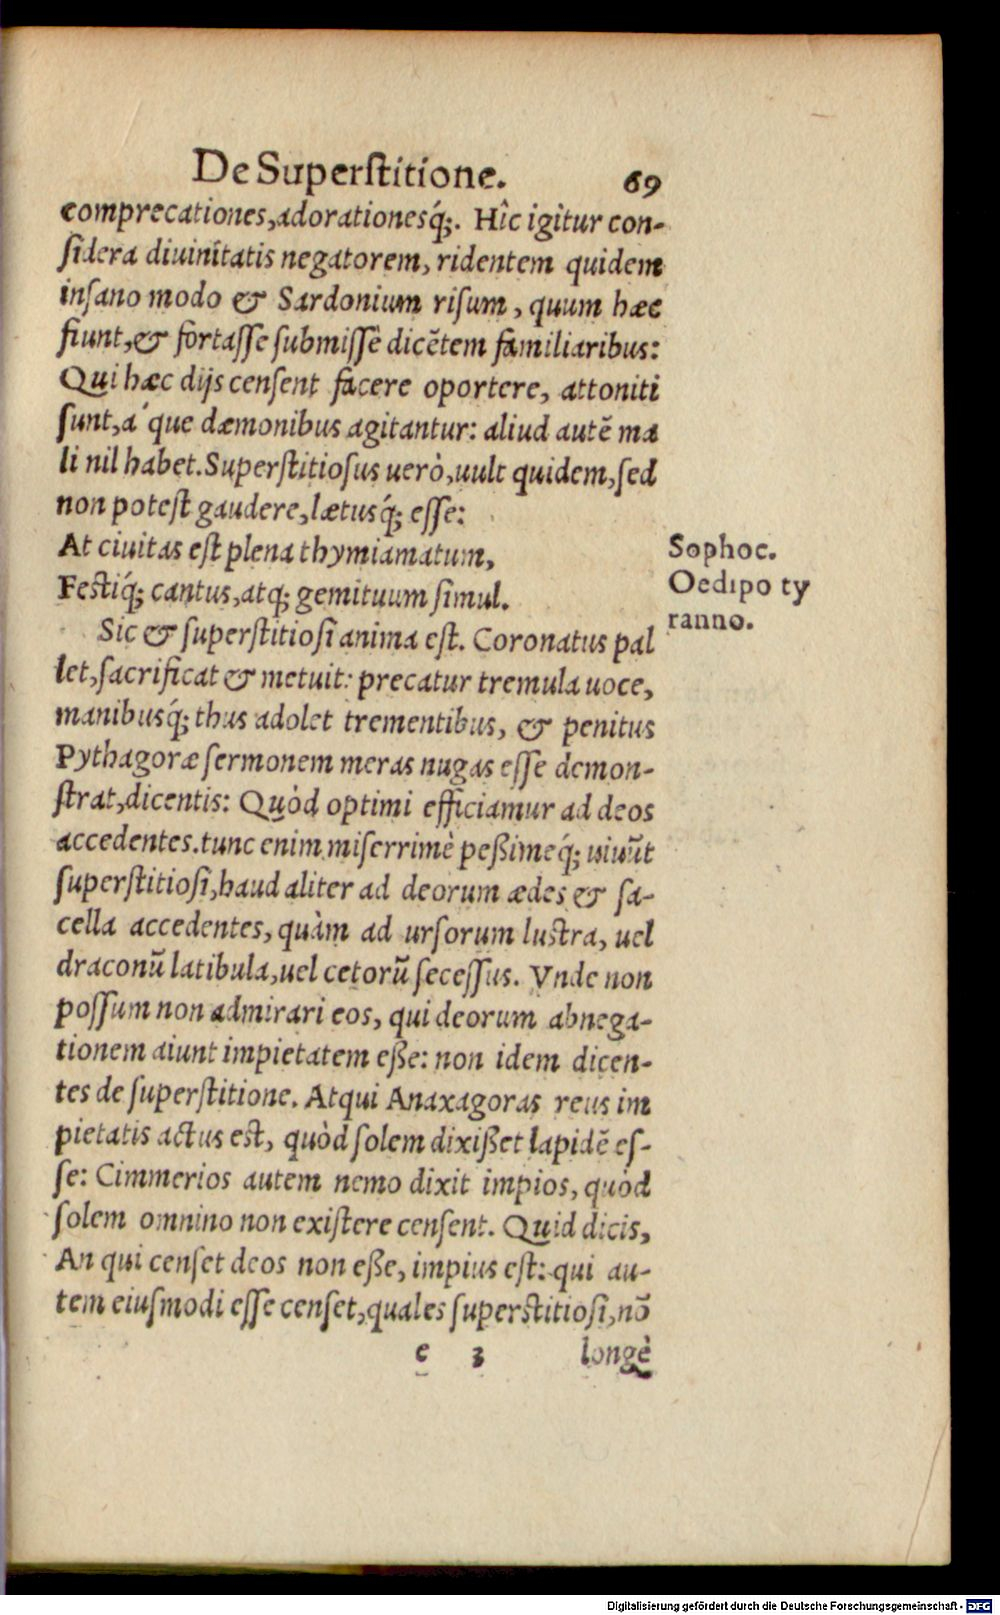 De Superstitione. 69
comprecationes, adorationesq́;. Hîc igitur con-
sidera diuinitatis negatorem, ridentem quidem
insano modo & Sardonium risum, quum hæc
fiunt, & fortasse submissè dicẽtem familiaribus:
Qui hæc dijs censent facere oportere, attoniti
sunt, a que dæmonibus agitantur: aliud autẽ ma
li nil habet. Superstitiosus uerò, uult quidem, sed
non potest gaudere, lætusq́; esse:
At ciuitas est plena thymiamatum,
Festiq́; cantus, atq; gemituum simul.
Sophoc.
Oedipo ty
ranno.
Sic & superstitiosi anima est. Coronatus pal
let, sacrificat & metuit: precatur tremula uoce,
manibusq́; thus adolet trementibus, & penitus
Pythagoræ sermonem meras nugas esse demon-
strat, dicentis: Quòd optimi efficiamur ad deos
accedentes. tunc enim miserrimè peßimeq́; uiuũt
superstitiosi, haud aliter ad deorum ædes & sa-
cella accedentes, quàm ad ursorum lustra, uel
draconũ latibula, uel cetorũ secessus. Vnde non
possum non admirari eos, qui deorum abnega-
tionem aiunt impietatem eße: non idem dicen-
tes de superstitione. Atqui Anaxagoras reus im
pietatis actus est, quòd solem dixißet lapidẽ es-
se: Cimmerios autem nemo dixit impios, quòd
solem omnino non existere censent. Quid dicis,
An qui censet deos non eße, impius est: qui au-
tem eiusmodi esse censet, quales superstitiosi, nõ
e 3 longè
Digitalisierung gefördert durch die Deutsche Forschungsgemeinschaft - DFG